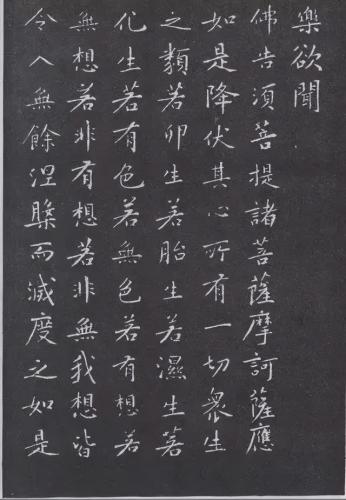 樂欲聞
佛告須菩提諸菩薩摩訶薩應
如是降伏其心所有一切衆生
之類若卵生若胎生若濕生若
化生若有色若無色若有想若
無想若非有想若非無我想皆
令入無餘涅槃而滅度之如是